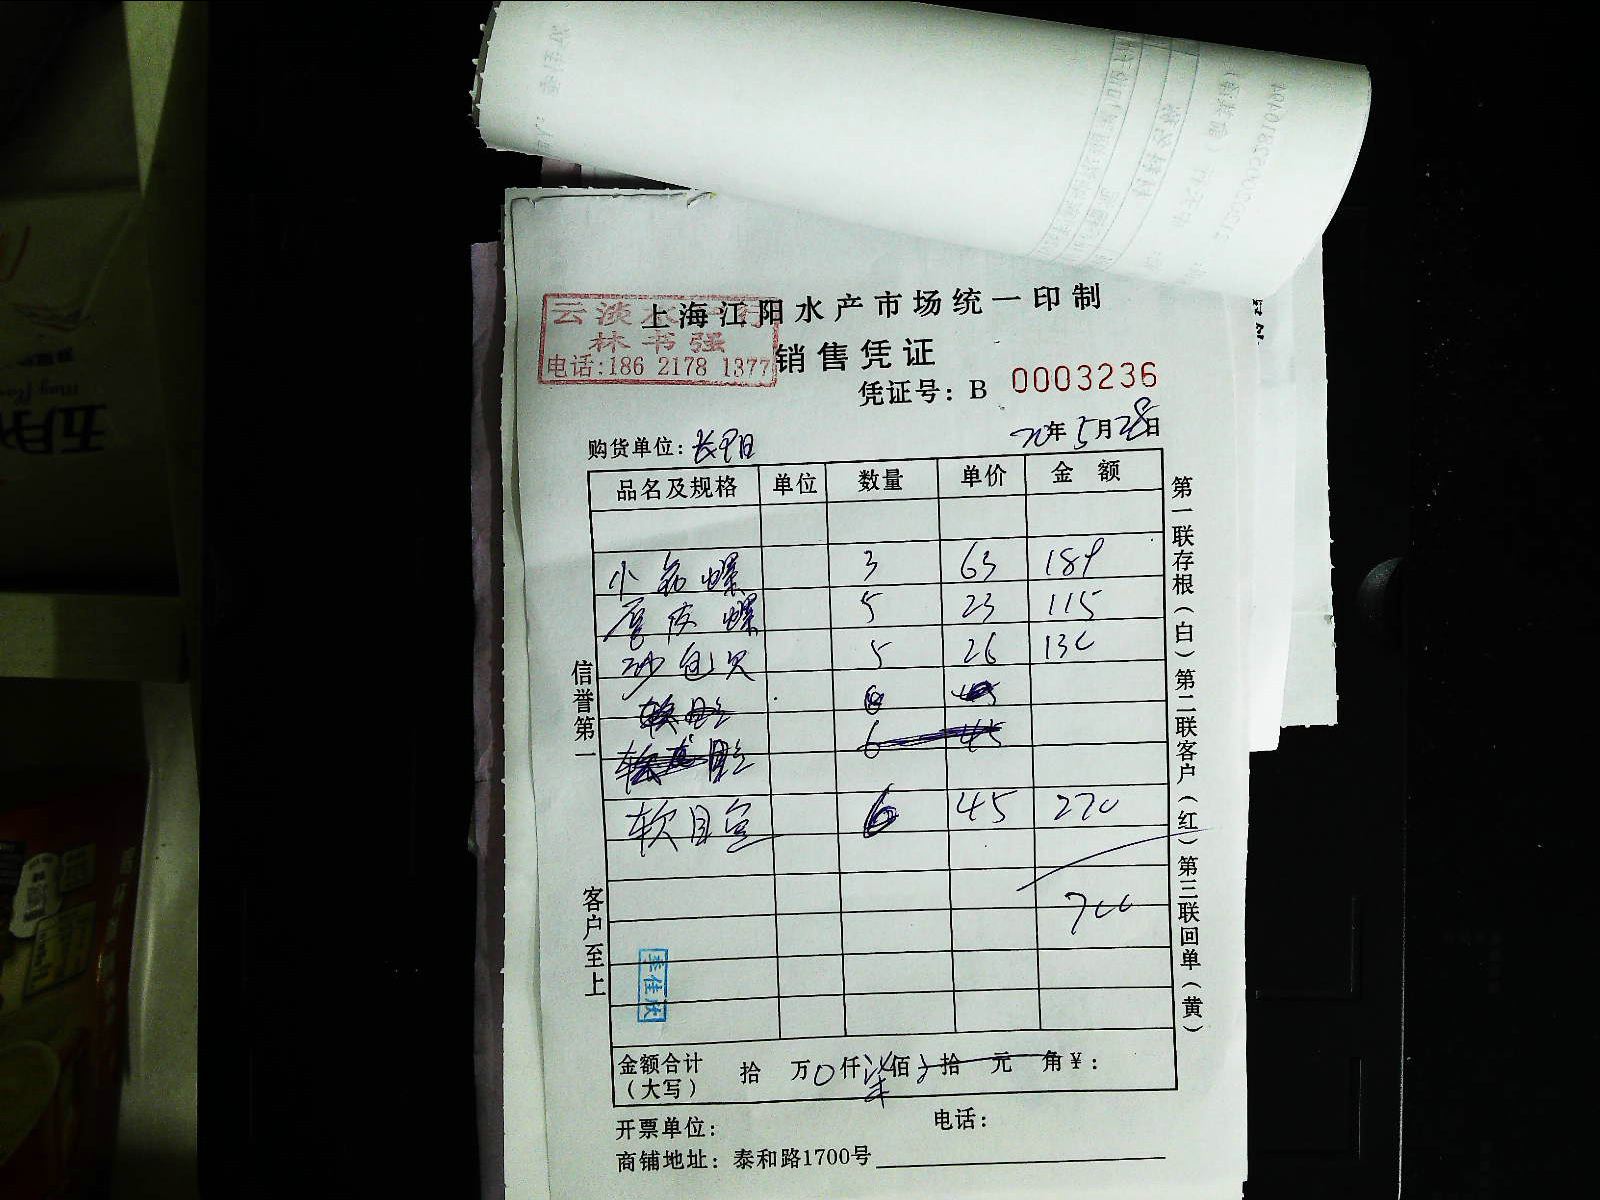 上海江阳水产市场统一印制
云淡水
林书强
电话:186 2178 1377
销售凭证
凭证号：B 0003236
购货单位：
20年5月28日
品名及规格 单位 数量 单价 金额
小 螺 3 63 189
厚皮螺 5 23 115
沙包贝 5 26 130
6 45
软 6 45 270
700
信誉第一
客户至上
第一联存根（白）第二联客户（红）第三联回单（黄）
李佳欣
金额合计（大写） 拾 万0仟柒佰 拾 元 角¥：
开票单位： 电话：
商铺地址：泰和路1700号
五月